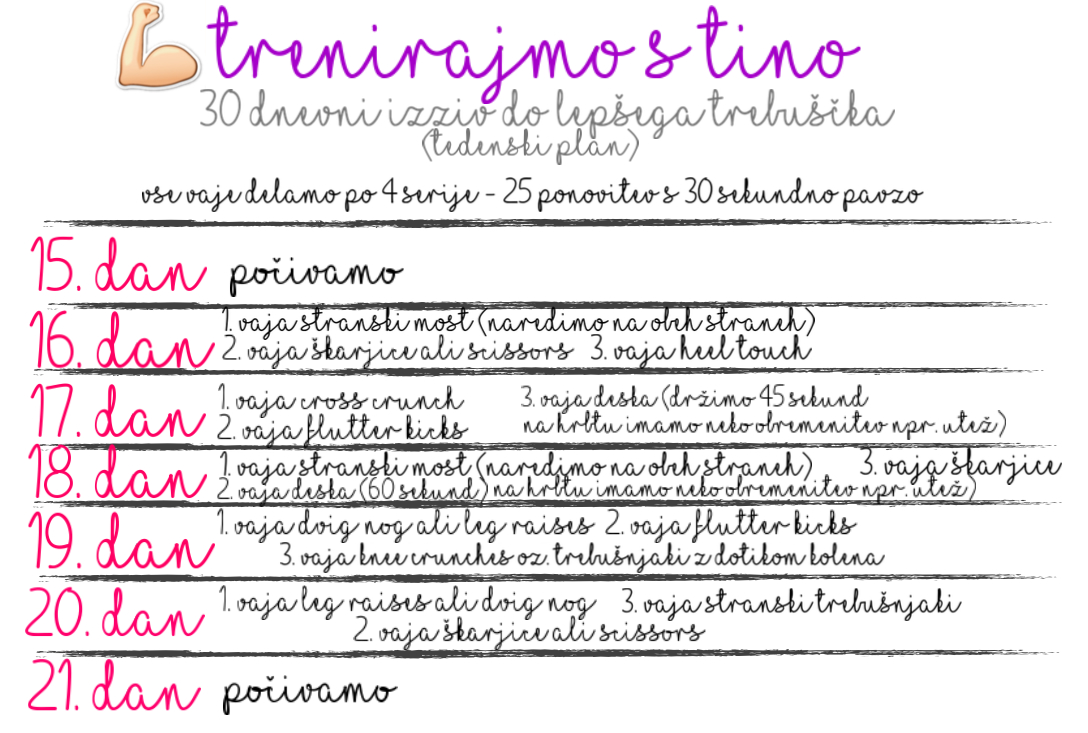 trenirajmo s tino
30 dnevni izziv do lepšega trebuščka
(tedenski plan)
vse vaje delamo po 4 serije - 25 ponovitev s 30 sekundno pavzo
15. dan počivamo
16. dan 1. vaja stranski most (naredimo na obeh straneh)
2. vaja škarjice ali scissors 3. vaja heel touch
17. dan 1. vaja cross crunch 3. vaja deska (držimo 45 sekund
2. vaja flutter kicks na hrbtu imamo neko obremenitev npr. utež)
18. dan 1. vaja stranski most (naredimo na obeh straneh) 3. vaja škarjice
2. vaja deska (60 sekund) na hrbtu imamo neko obremenitev npr. utež)
19. dan 1. vaja dvig nog ali leg raises 2. vaja flutter kicks
3. vaja knee crunches oz. trebušnjaki z dotikom kolena
20. dan 1. vaja leg raises ali dvig nog 3. vaja stranski trebušnjaki
2. vaja škarjice ali scissors
21. dan počivamo